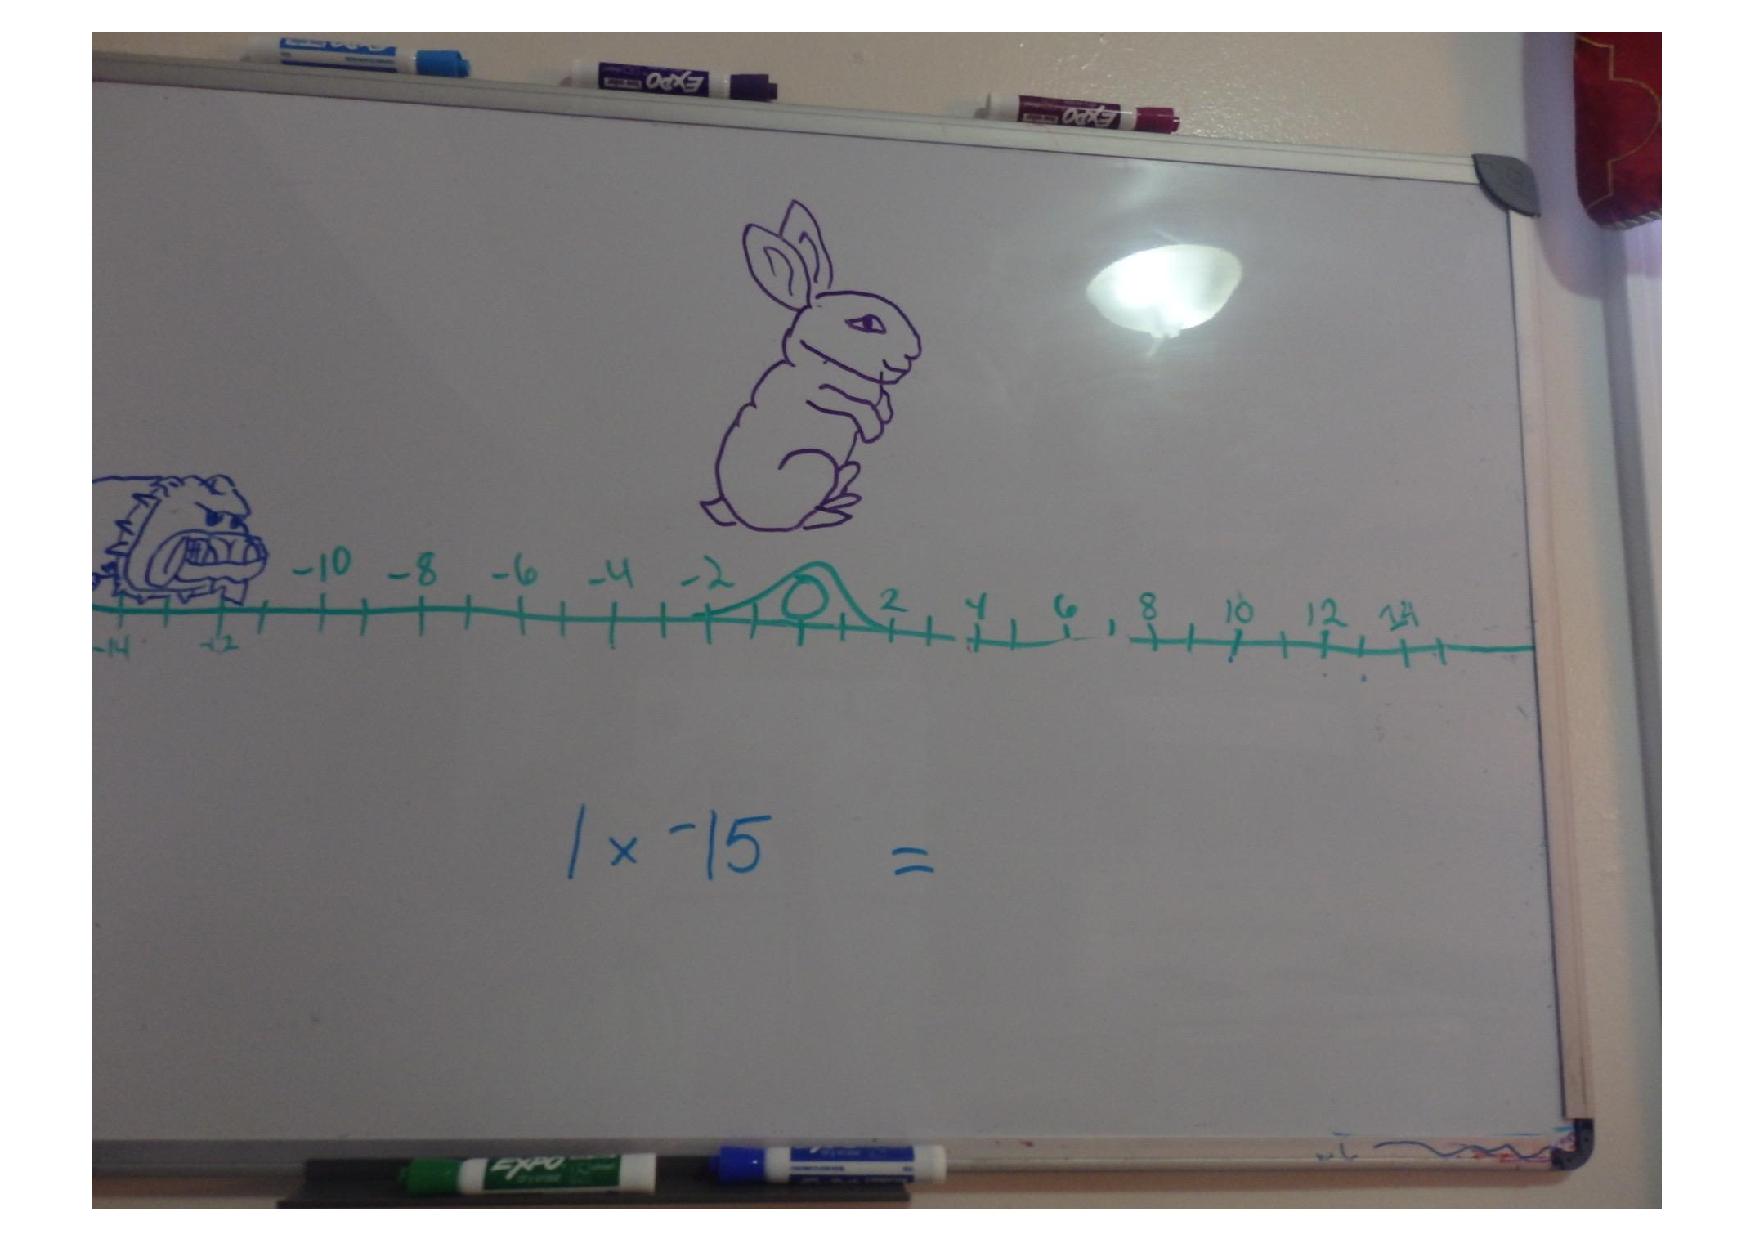 EXPO
EXPO
-10 -8 -6 -4 -2 0 2 4 6 8 10 12 14
-14 -12
1 x -15 =
EXPO